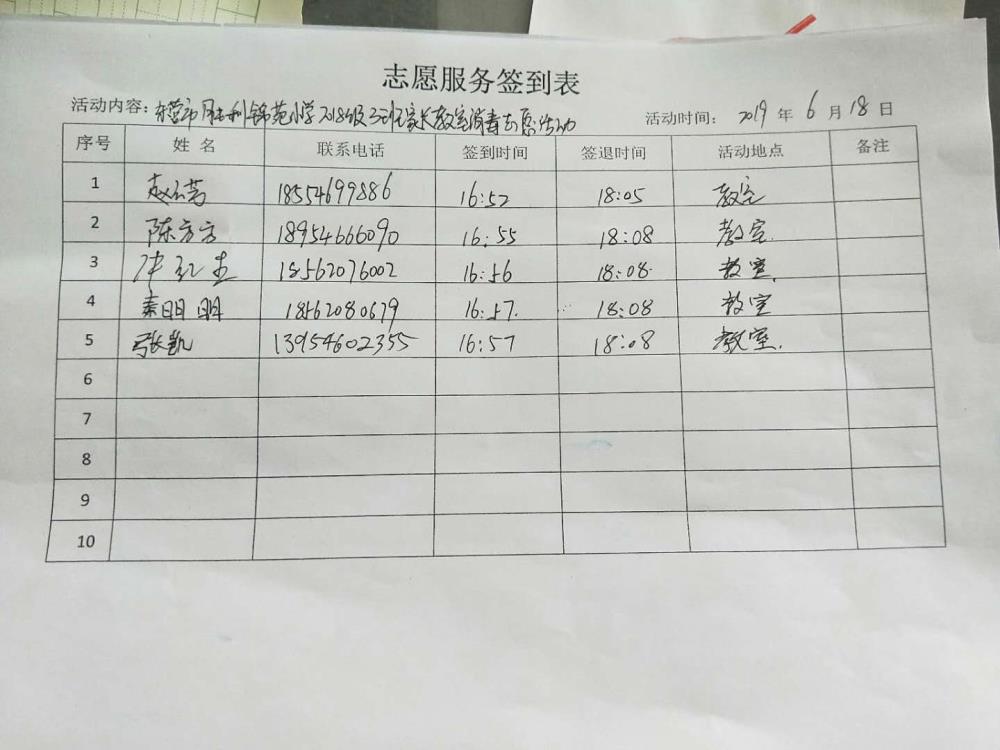 志愿服务签到表
活动内容：东营市胜利锦苑小学2018级3班家长教室消毒志愿活动
活动时间： 2019 年 6 月 18 日
序号 姓 名 联系电话 签到时间 签退时间 活动地点 备注
1 赵云芳 18554699886 16:52 18:05 教室
2 陈方方 18954666090 16:55 18:08 教室.
3 13562076002 16:56 18:08. 教室.
4 秦明明 18562080679 16:57. 18:08 教室
5 张凯 13954602355 16:57 18:08 教室.
6
7
8
9
10